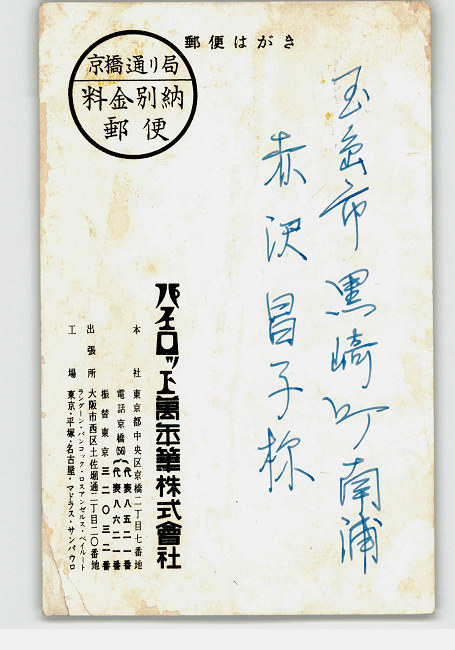 郵便はがき
玉島市黒崎町南浦
赤沢昌子様
京橋通り局
料金別納
郵便
パイロット萬年筆株式會社
本社 東京都中央区京橋二丁目七番地
電話京橋(56)(代表八五二一番
(代表八六二一番
振替東京三二〇三二番
出張所 大阪市西区土佐堀通二丁目二〇番地
ラングーン・バンコック・ロスアンゼルス・ベイルート
工場 東京・平塚・名古屋・マドラス・サンパウロ